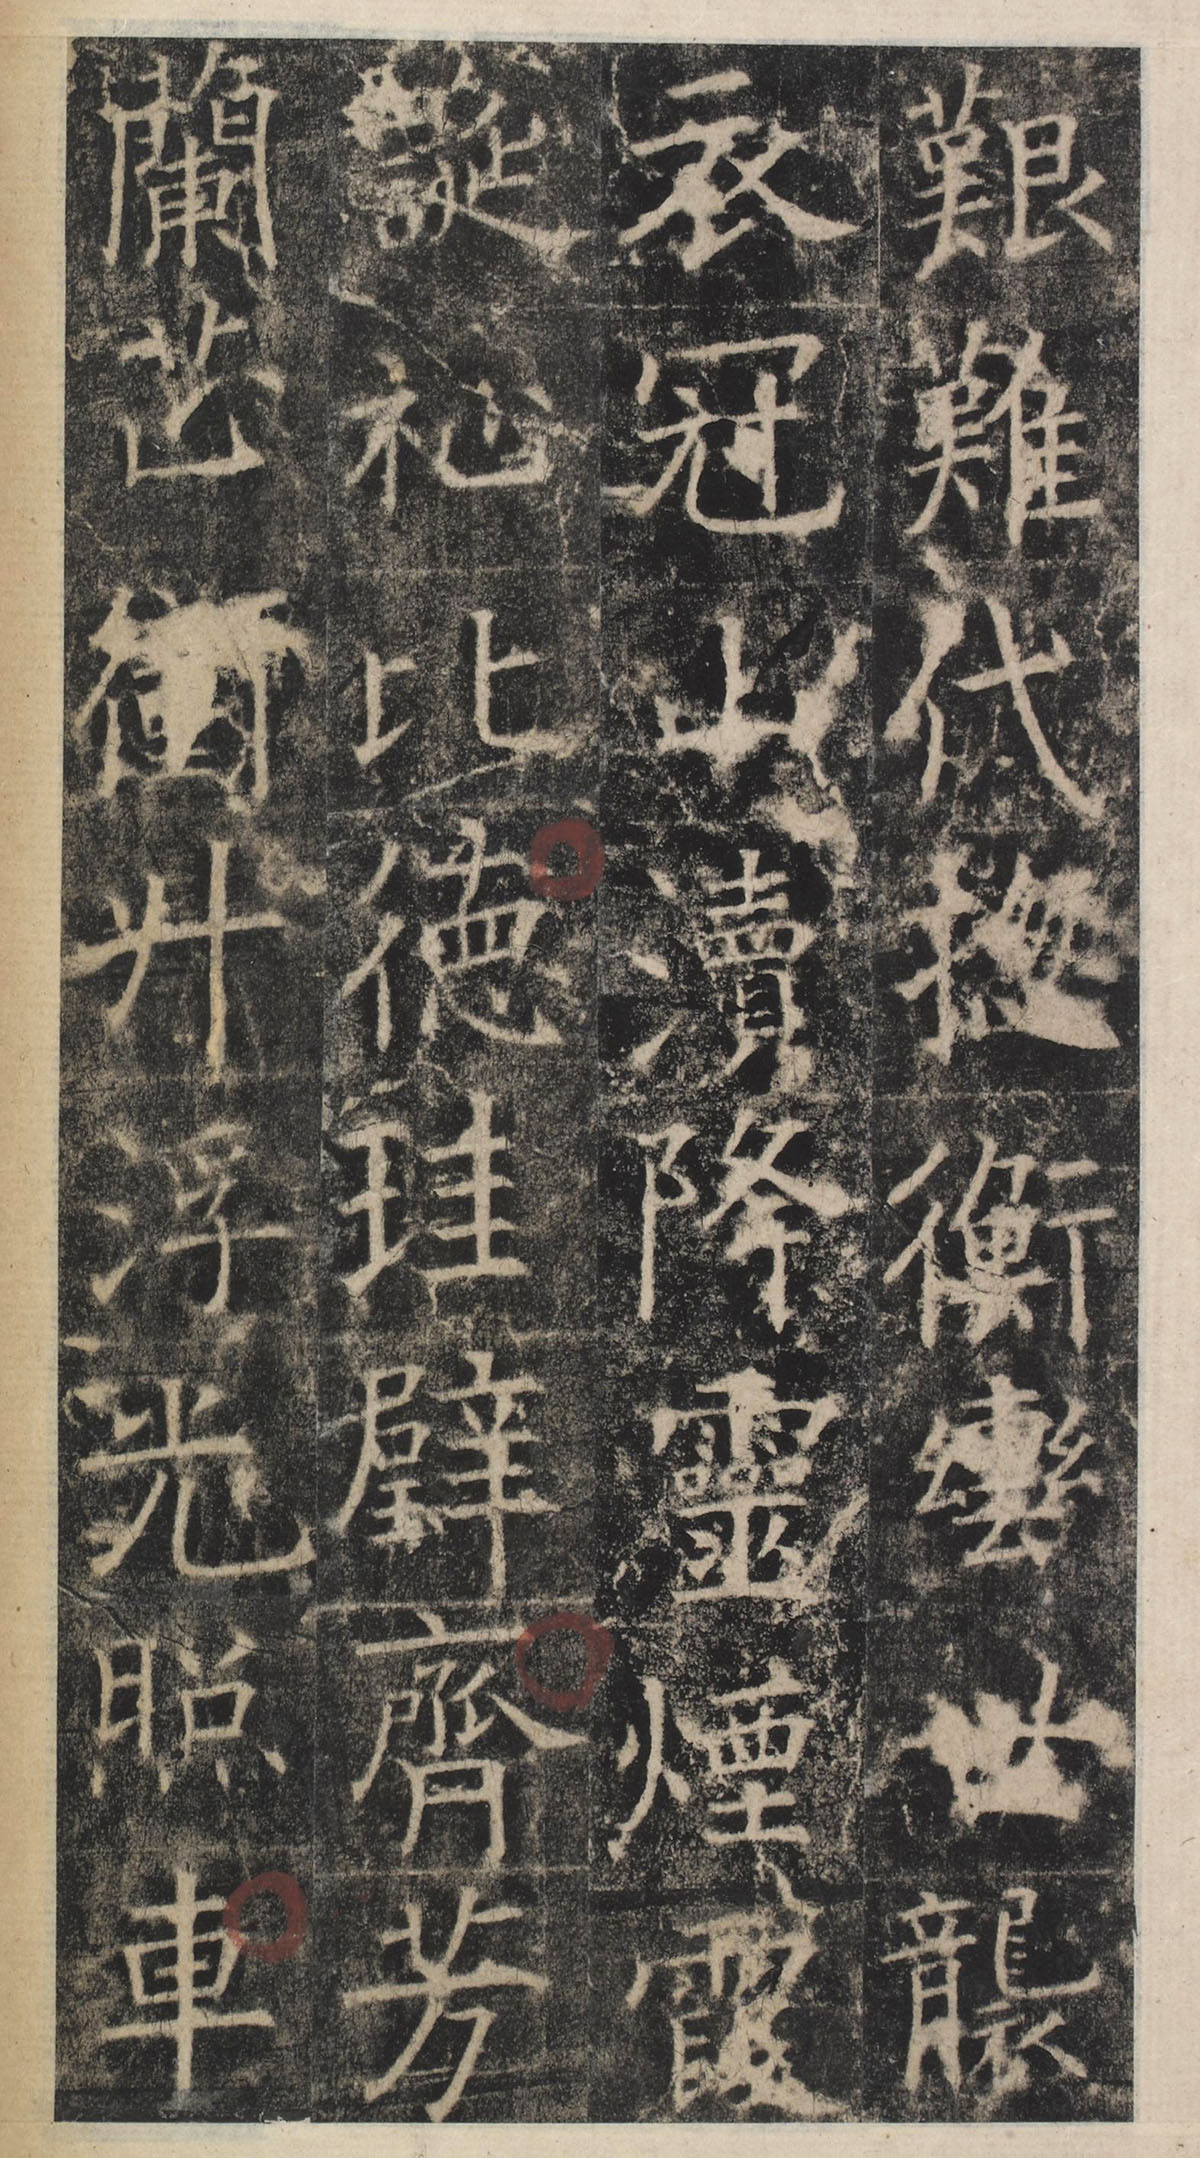 艱難代衡轡世襲
衮冠山瀆降靈煙霞
誕祉比德珪璧齊芳
蘭芷衝斗浮光照車